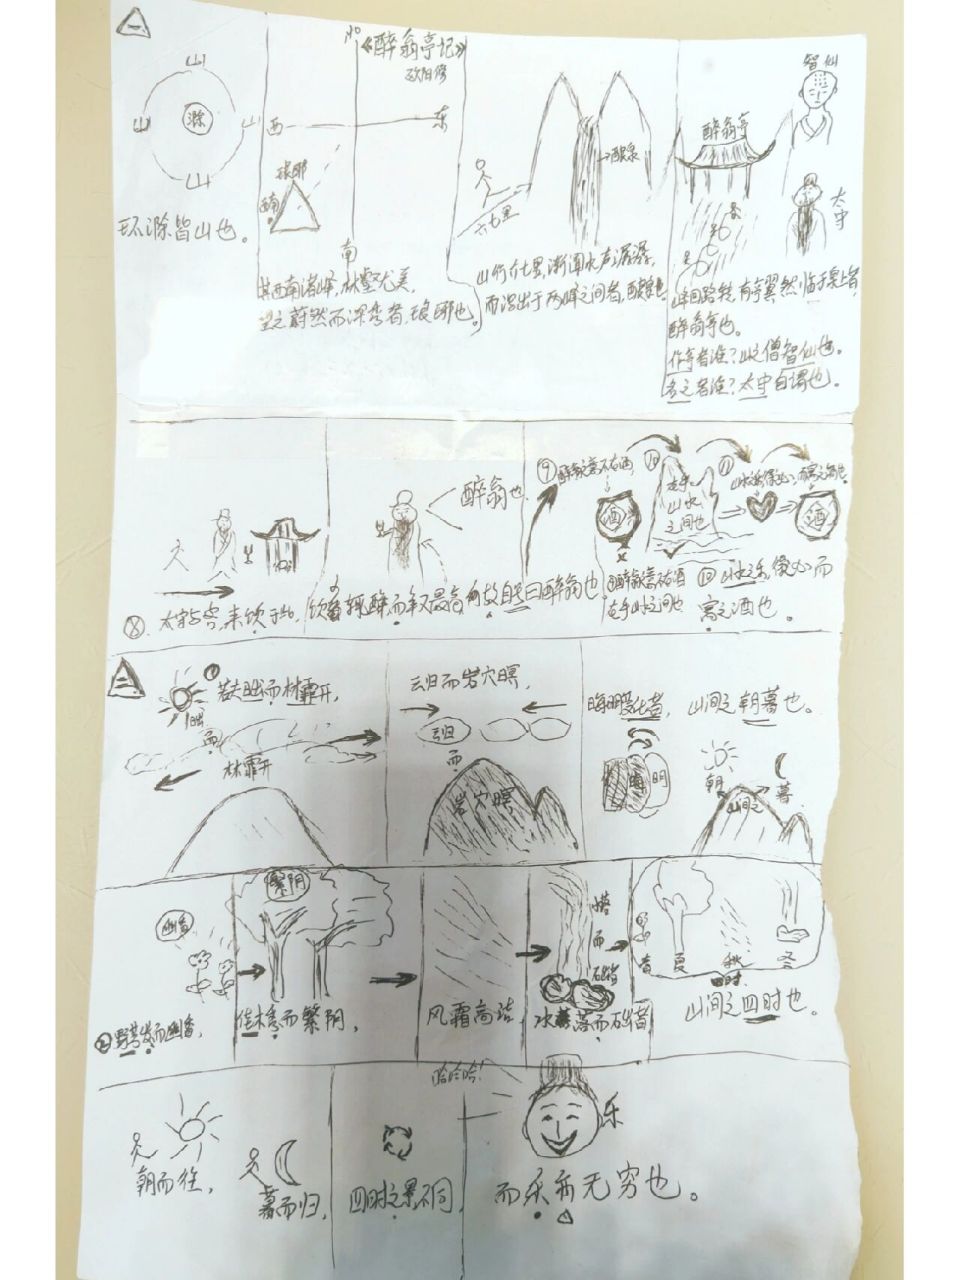 一
山
山
滁
山
山
环滁皆山也。
北
《醉翁亭记》
欧阳修
西
东
琅琊
西南
南
其西南诸峰，林壑尤美，
望之蔚然而深秀者，琅琊也。
酿泉
六七里
山行六七里，渐闻水声潺潺，
而泻出于两峰之间者，酿泉也。
智仙
醉翁亭
太守
峰回路转，有亭翼然临于泉上者，
醉翁亭也。
作亭者谁？山之僧智仙也。
名之者谁？太守自谓也。
⑧．太守与客，来饮于此，
醉翁也
饮少辄醉，而年又最高，故自号曰醉翁也。
⑨
醉翁之意不在酒
⑩
在乎
山水
之间也
⑪
山水之乐，得之心，而寓之酒也。
酒
酒
醉翁之意不在酒
在乎山水之间也
⑩山水之乐，得之心而
寓之酒也。
二
①
若夫日出而林霏开，
日出
而
林霏开
云归而岩穴暝，
云归
而
岩穴暝
晦明变化者，
晦
明
山间之朝暮也。
朝
山间之
暮
幽香
②野芳发而幽香，
繁阴
佳木秀而繁阴，
风霜高洁，
落
而
石出者
水落而石出者
春
夏
秋
冬
四时
山间之四时也。
朝而往，
暮而归，
四时之景不同，
哈哈哈！
乐
而乐亦无穷也。